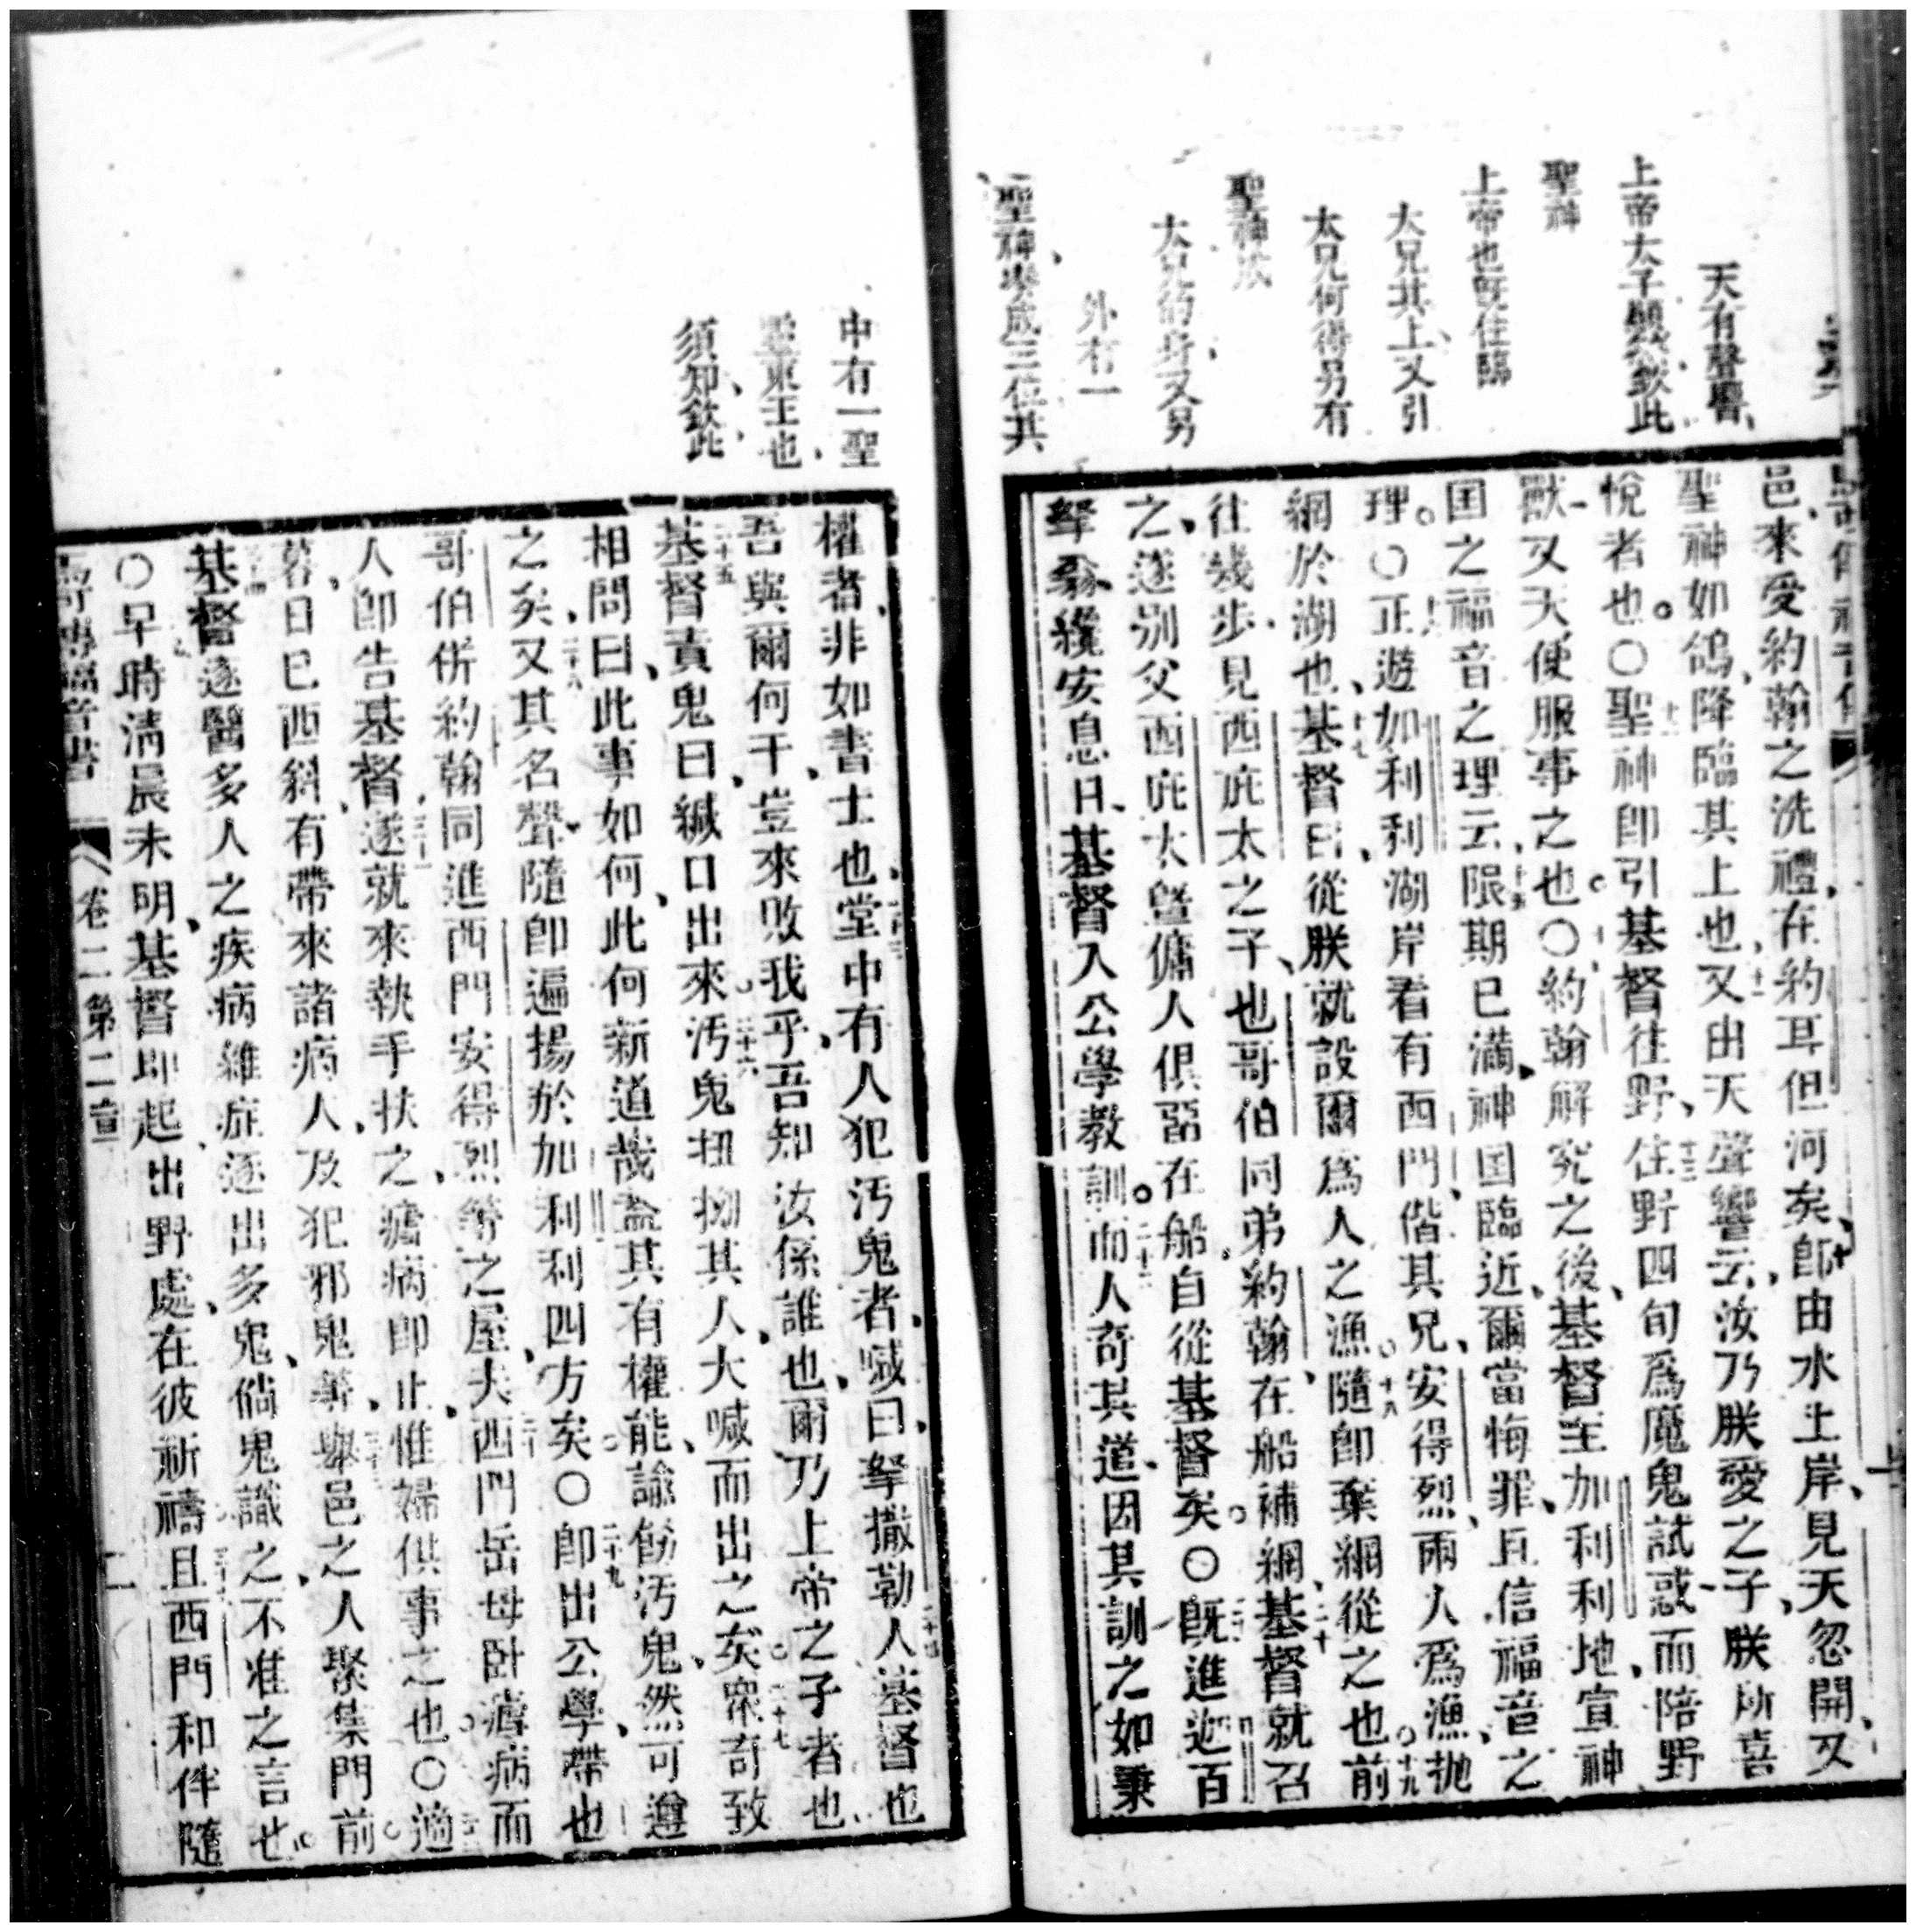 天有聲響
上帝太子顯然欽此
聖神
上帝也既住臨
太兄其上又引
太兄何得另有
聖神
太兄的身又另
外有一
聖神湊成三位其
邑來受約翰之洗禮在約耳但河矣十卽由水上岸見天忽開又
聖神如鴿降臨其上也十一又由天聲響云汝乃朕愛之子朕所喜
悅者也〇十二聖神卽引基督往野十三住野四旬爲魔鬼試惑而陪野
獸又天使服事之也〇約翰解究之後基督至加利利地宣神
国之福音之理云十五限期已滿神国臨近爾當悔罪且信福音之
理〇正遊加利利湖岸看有西門偕其兄安得烈兩人爲漁拋
網於湖也十七基督曰從朕就設爾爲人之漁十八隨卽棄網從之也十九前
往幾步見西庇太之子也哥伯同弟約翰在船補網二十基督就召
之遂別父西庇太曁傭人俱留在船自從基督矣〇既進迦百
拏翕纔安息日基督入公學教訓二十二而人奇其道因其訓之如秉
中有一聖
靈東王也
須知欽此
權者非如書士也二十三堂中有人犯汚鬼者喊曰拏撒勒人二十四基督也
吾與爾何干豈來敗我乎吾知汝係誰也爾乃上帝之子者也
二十五基督責鬼曰緘口出來二十六汚鬼扭拗其人大喊而出之矣二十七衆奇致
相問曰此事如何此何新道哉蓋其有權能諭飭汚鬼然可遵
之矣二十八又其名聲隨卽遍揚於加利利四方矣〇二十九卽出公學帶也
哥伯併約翰同進西門安得烈等之屋三十夫西門岳母臥瘧病而
人卽告基督三十一遂就來執手扶之瘧病卽止惟婦供事之也〇適
暮日已西斜有帶來諸病人及犯邪鬼等舉邑之人聚集門前
基督遂醫多人之疾病雜症逐出多鬼倘鬼識之不准之言也
〇早時清晨未明基督卽起出野處在彼祈禱且西門和伴隨
馬可傳福音書 卷二 第二章 二